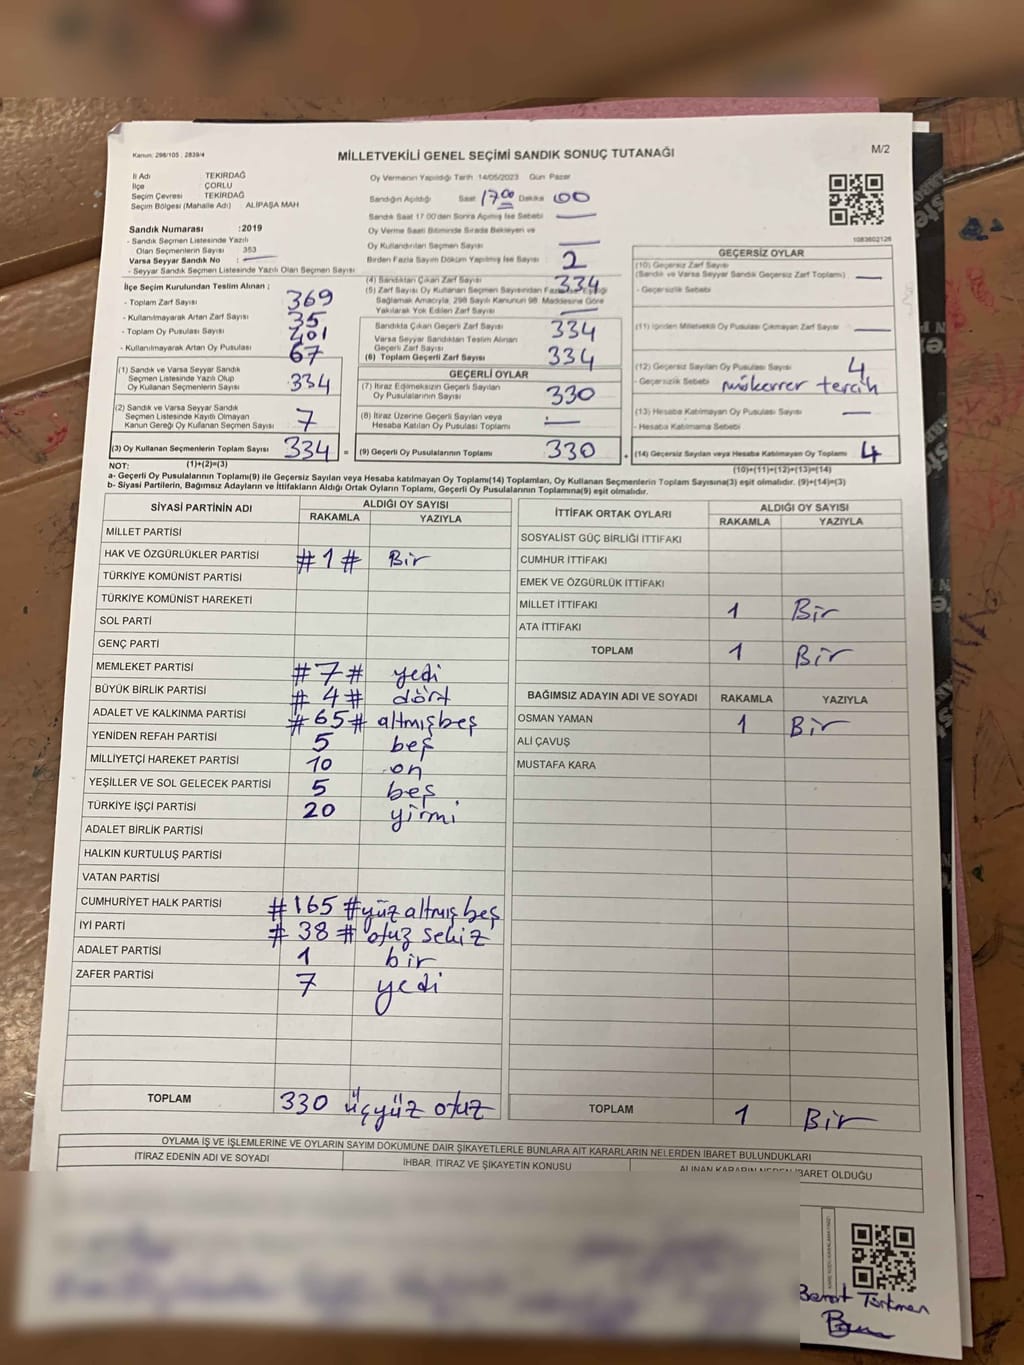 Kanun: 298/105 ; 2839/4
MİLLETVEKİLİ GENEL SEÇİMİ SANDIK SONUÇ TUTANAĞI
M/2
İl Adı TEKİRDAĞ
İlçe ÇORLU
Seçim Çevresi TEKİRDAĞ
Seçim Bölgesi (Mahalle Adı) ALİPAŞA MAH
Sandık Numarası :2019
- Sandık Seçmen Listesinde Yazılı
Olan Seçmenlerin Sayısı 353
Varsa Seyyar Sandık No : —
- Seyyar Sandık Seçmen Listesinde Yazılı Olan Seçmen Sayısı
İlçe Seçim Kurulundan Teslim Alınan ;
- Toplam Zarf Sayısı 369
- Kullanılmayarak Artan Zarf Sayısı 35
- Toplam Oy Pusulası Sayısı 401
- Kullanılmayarak Artan Oy Pusulası 67
(1) Sandık ve Varsa Seyyar Sandık
Seçmen Listesinde Yazılı Olup
Oy Kullanan Seçmenlerin Sayısı 334
(2) Sandık ve Varsa Seyyar Sandık
Seçmen Listesinde Kayıtlı Olmayan
Kanun Gereği Oy Kullanan Seçmen Sayısı 7
(3) Oy Kullanan Seçmenlerin Toplam Sayısı 334 =
Oy Vermenin Yapıldığı Tarih 14/05/2023 Gün Pazar
Sandığın Açıldığı Saat 17.00 Dakika 00
Sandık Saat 17:00'den Sonra Açılmış İse Sebebi —
Oy Verme Saati Bitiminde Sırada Bekleyen ve
Oy Kullandırılan Seçmen Sayısı —
Birden Fazla Sayım Döküm Yapılmış İse Sayısı 2
(4) Sandıktan Çıkan Zarf Sayısı 334
(5) Zarf Sayısı Oy Kullanan Seçmen Sayısından Fazla İse Eşitliği
Sağlamak Amacıyla, 298 Sayılı Kanunun 98. Maddesine Göre
Yakılarak Yok Edilen Zarf Sayısı —
Sandıkta Çıkan Geçerli Zarf Sayısı 334
Varsa Seyyar Sandıktan Teslim Alınan
Geçerli Zarf Sayısı
(6) Toplam Geçerli Zarf Sayısı 334
GEÇERLİ OYLAR
(7) İtiraz Edilmeksizin Geçerli Sayılan
Oy Pusulalarının Sayısı 330
(8) İtiraz Üzerine Geçerli Sayılan veya
Hesaba Katılan Oy Pusulası Toplamı —
(9) Geçerli Oy Pusulalarının Toplamı 330 +
1083602126
GEÇERSİZ OYLAR
(10) Geçersiz Zarf Sayısı
(Sandık ve Varsa Seyyar Sandık Geçersiz Zarf Toplamı) —
- Geçersizlik Sebebi
(11) İçinden Milletvekili Oy Pusulası Çıkmayan Zarf Sayısı —
(12) Geçersiz Sayılan Oy Pusulası Sayısı 4
- Geçersizlik Sebebi mükerrer tercih
(13) Hesaba Katılmayan Oy Pusulası Sayısı —
- Hesaba Katılmama Sebebi
(14) Geçersiz Sayılan veya Hesaba Katılmayan Oy Toplamı 4
NOT: (1)+(2)=(3)
(10)+(11)+(12)+(13)=(14)
a- Geçerli Oy Pusulalarının Toplamı(9) ile Geçersiz Sayılan veya Hesaba katılmayan Oy Toplamı(14) Toplamları, Oy Kullanan Seçmenlerin Toplam Sayısına(3) eşit olmalıdır. (9)+(14)=(3)
b- Siyasi Partilerin, Bağımsız Adayların ve İttifakların Aldığı Oy Sayıları Toplamı, Geçerli Oy Pusulalarının Toplamına(9) eşit olmalıdır.
SİYASİ PARTİNİN ADI ALDIĞI OY SAYISI
RAKAMLA YAZIYLA
MİLLET PARTİSİ
HAK VE ÖZGÜRLÜKLER PARTİSİ #1# Bir
TÜRKİYE KOMÜNİST PARTİSİ
TÜRKİYE KOMÜNİST HAREKETİ
SOL PARTİ
GENÇ PARTİ
MEMLEKET PARTİSİ #7# yedi
BÜYÜK BİRLİK PARTİSİ #4# dört
ADALET VE KALKINMA PARTİSİ #65# altmışbeş
YENİDEN REFAH PARTİSİ 5 beş
MİLLİYETÇİ HAREKET PARTİSİ 10 on
YEŞİLLER VE SOL GELECEK PARTİSİ 5 beş
TÜRKİYE İŞÇİ PARTİSİ 20 yirmi
ADALET BİRLİK PARTİSİ
HALKIN KURTULUŞ PARTİSİ
VATAN PARTİSİ
CUMHURİYET HALK PARTİSİ #165# yüz altmış beş
İYİ PARTİ #38# otuz sekiz
ADALET PARTİSİ 1 bir
ZAFER PARTİSİ 7 yedi
TOPLAM 330 üçyüz otuz
İTTİFAK ORTAK OYLARI ALDIĞI OY SAYISI
RAKAMLA YAZIYLA
SOSYALİST GÜÇ BİRLİĞİ İTTİFAKI
CUMHUR İTTİFAKI
EMEK VE ÖZGÜRLÜK İTTİFAKI
MİLLET İTTİFAKI 1 Bir
ATA İTTİFAKI
TOPLAM 1 Bir
BAĞIMSIZ ADAYIN ADI VE SOYADI RAKAMLA YAZIYLA
OSMAN YAMAN 1 Bir
ALİ ÇAVUŞ
MUSTAFA KARA
TOPLAM 1 Bir
OYLAMA İŞ VE İŞLEMLERİNE VE OYLARIN SAYIM DÖKÜMÜNE DAİR ŞİKAYETLERLE BUNLARA AİT KARARLARIN NELERDEN İBARET BULUNDUKLARI
İTİRAZ EDENİN ADI VE SOYADI İHBAR, İTİRAZ VE ŞİKAYETİN KONUSU ALINAN KARARIN NEDEN İBARET OLDUĞU
Berat Türkmen